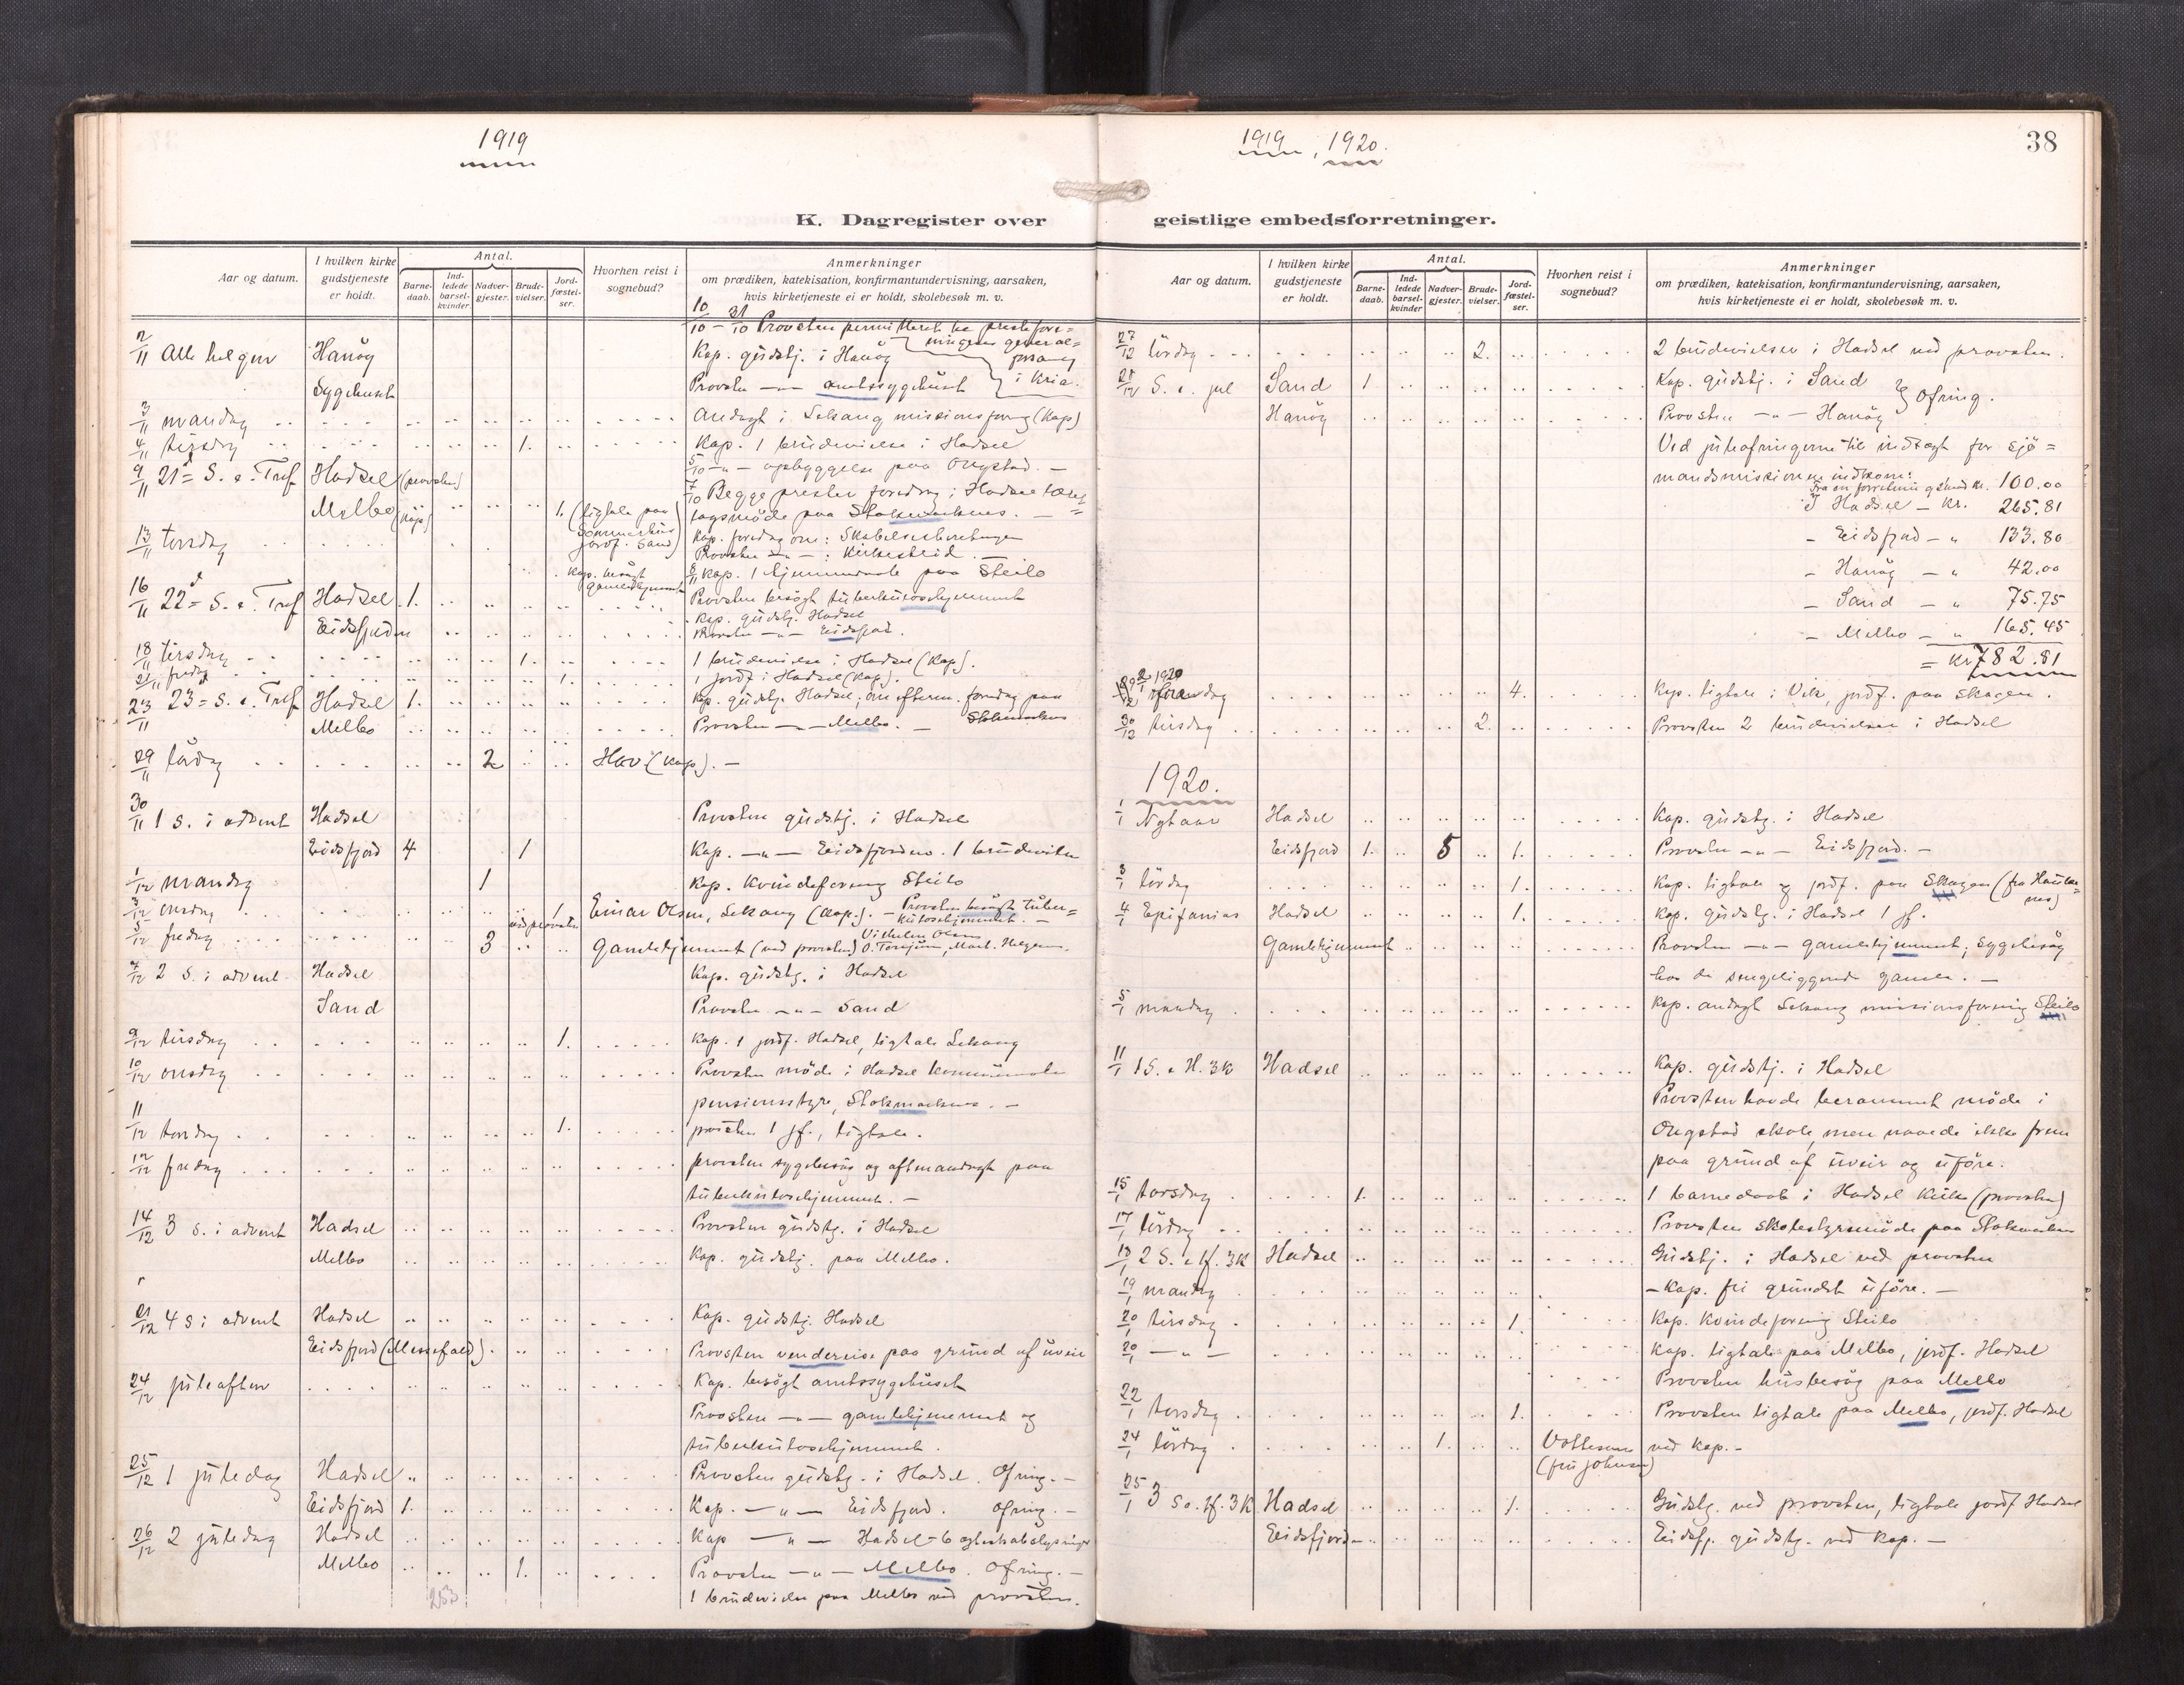 1919
K. Dagregister over
Aar og datum.
I hvilken kirke gudstjeneste er holdt.
Antal.
Barnedaab.
Indledede barselkvinder
Nadvergjester.
Brudevielser.
Jordfæstelser.
Hvorhen reist i sognebud?
Anmerkninger
om prædiken, katekisation, konfirmantundervisning, aarsaken,
hvis kirketjeneste ei er holdt, skolebesøk m. v.
10/10 - 21/10 Provsten permitteret
2/11 Alle helgen Hanöy Kap. gudstj. i Hanöy i Kria.
Sygehuset Provsten -"- amtssygehuset
3/11 mandag Andagt i missionsforeng (Kap)
4/11 tirsdag 1. Kap. 1 brudevielse i Hadsel
5/10 -"- opbyggelse paa Ongstad. -
9/11 21de S. e. Tref Hadsel (provsten)
7/10 Begge prester foredrag i Hadsel
Melbo (Kap) 1. (ligtale paa
jordf. Sand) lagsmöde paa Stokmarknes. -
13/11 torsdag Kap. foredrag om: Skabelsesberetningen
Provsten -"- : Kirkestrid. -
Kap. besögt gamlehjemmet
8/11 Kap. 1 hjemmedaab paa Steilo
16/11 22de S. e. Tref Hadsel 1. Provsten besögt tuberkulosehjemmet
Kap. gudstj. Hadsel
Eidsfjorden Provsten -"- Eidsfjord.
18/11 tirsdag 1. 1 brudevielse i Hadsel (Kap).
21/11 fredag 1. 1 jordf i Hadsel (Kap).
23/11 23de S. e. Tref Hadsel 1. Kap. gudstj. Hadsel, om efterm. foredrag paa
Melbo Provsten -"- Melbo. - Stokmarknes
29/11 lördag 2 Hav (Kap). -
30/11 1 S. i advent Hadsel Provsten gudstj. i Hadsel
Eidsfjord 4 1 Kap. -"- Eidsfjorden. 1 brudevielse
1/12 mandag 1 Kap. Kvindeforening Steilo
3/12 onsdag 1 ved provsten Einar Olsen, (Kap.). - Provsten besögt tuberkulosehjemmet. -
5/12 fredag 3 Gamlehjemmet (ved provsten) Vilhelm Olsen
7/12 2 S. i advent Hadsel Kap. gudstj. i Hadsel
Sand Provsten -"- Sand
9/12 tirsdag 1. Kap. 1 jordf. Hadsel, ligtale
10/12 onsdag Provsten möde i Hadsel kommunale
pensionsstyre, Stokmarknes. -
11/12 torsdag 1. provsten 1 jf., ligtale.
12/12 fredag provsten sygebesög og aftenandagt paa
tuberkulosehjemmet. -
14/12 3 S. i advent Hadsel Provsten gudstj. i Hadsel
Melbo Kap. gudstj. paa Melbo.
21/12 4 S i advent Hadsel Kap. gudstj. Hadsel
Eidsfjord (Messefald). Provsten vendereise paa grund af uveir
24/12 juleaften Kap. besögt amtssygehuset
Provsten -"- gamlehjemmet og
tuberkulosehjemmet.
25/12 1 juledag Hadsel Provsten gudstj. i Hadsel. Ofring. -
Eidsfjord 1. Kap. -"- Eidsfjord. Ofring. -
26/12 2 juledag Hadsel Kap -"- Hadsel - 6
Melbo 1. Provsten -"- Melbo. Ofring. -
1 brudevielse paa Melbo ved provsten.
253
1919, 1920.
38
geistlige embedsforretninger.
Aar og datum.
I hvilken kirke gudstjeneste er holdt.
Antal.
Barnedaab.
Indledede barselkvinder
Nadvergjester.
Brudevielser.
Jordfæstelser.
Hvorhen reist i sognebud?
Anmerkninger
om prædiken, katekisation, konfirmantundervisning, aarsaken,
hvis kirketjeneste ei er holdt, skolebesøk m. v.
27/12 lördag 2. 2 brudevielser i Hadsel ved provsten.
28/12 S. e. jul Sand 1 Kap. gudstj. i Sand
Hanöy Provsten -"- Hanöy Ofring.
Ved juleofringerne til indtægt for sjö=
mandsmissionen indkom:
Fra en forretning kr. 100.00
I Hadsel - kr. 265.81
- Eidsfjord - " 133.80
- Hanöy - " 42.00
- Sand - " 75.75
- Melbo - " 165.45
= kr 782.81
2/1 1920 4. Kap. ligtale i Vik, jordf. paa Skagen.
30/12 tirsdag 2. Provsten 2 brudevielser i Hadsel
1920.
1/1 Nytaar Hadsel Kap. gudstj. i Hadsel
Eidsfjord 1. 5 1. Provsten -"- Eidsfjord. -
3/1 lördag 1. Kap. ligtale og jordf. paa Skagen
4/1 Epifanias Hadsel 1. Kap. gudstj. i Hadsel 1 jf.
Gamlehjemmet Provsten -"- gamlehjemmet; sygebesög
hos de sengeliggende gamle. -
5/1 mandag Kap. andagt missionsforening Steilo
11/1 1 S. e H. 3 K Hadsel Kap. gudstj. i Hadsel
Provsten havde berammet möde i
Ongstad skole, men naaede ikke frem
paa grund af uveir og uföre.
15/1 torsdag 1. 1 barnedaab i Hadsel Kirke (provsten)
17/1 lördag Provsten skolestyremöde paa Stokmarknes
18/1 2 S. e H. 3 K Hadsel Gudstj. i Hadsel ved provsten
19/1 mandag - Kap. fri grundet uföre. -
20/1 tirsdag 1. Kap. Kvindeforening Steilo
20/1 -"- Kap. ligtale paa Melbo, jordf. Hadsel
Provsten husbesög paa Melbo
22/1 torsdag 1. Provsten ligtale paa Melbo, jordf. Hadsel
24/1 lördag 1. ved Kap. -
(fru Johnsen)
25/1 3 S e. H. 3 K Hadsel 1. Gudstj. ved provsten, ligtale jordf Hadsel
Eidsfjord Eidsfj. gudstj. ved Kap. -